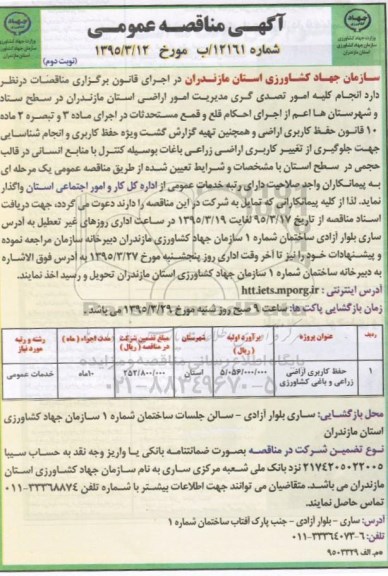 جهاد
وزارت جهاد کشاورزی
سازمان جهاد کشاورزی
استان مازندران
آگهی مناقصه عمومی
شماره ۱۲۱۶۱/ب مورخ ۱۳۹۵/۳/۱۲
(نوبت دوم)
سازمان جهاد کشاورزی استان مازندران در اجرای قانون برگزاری مناقصات درنظر
دارد انجام کلیه امور تصدی گری مدیریت امور اراضی استان مازندران در سطح ستاد
و شهرستان ها اعم از اجرای احکام قلع و قمع مستحدثات در اجرای ماده ۳ و تبصره ۲ ماده
۱۰ قانون حفظ کاربری اراضی و همچنین تهیه گزارش گشت ویژه حفظ کاربری و انجام شناسایی
جهت جلوگیری از تغییر کاربری اراضی زراعی باغات بوسیله کنترل با منابع انسانی در قالب
حجمی در سطح استان با مشخصات و شرایط تعیین شده از طریق مناقصه عمومی یک مرحله ای
به پیمانکاران واجد صلاحیت دارای رتبه خدمات عمومی از اداره کل کار و امور اجتماعی استان واگذار
نماید. لذا از کلیه پیمانکارانی که تمایل به شرکت در این مناقصه را دارند دعوت می گردد، جهت دریافت
اسناد مناقصه از تاریخ ۹۵/۳/۱۷ لغایت ۱۳۹۵/۳/۱۹ در ساعت اداری روزهای غیر تعطیل به آدرس
ساری بلوار آزادی ساختمان شماره ۱ سازمان جهاد کشاورزی مازندران دبیرخانه سازمان مراجعه نموده
و پیشنهادات خود را نیز تا آخر وقت اداری روز پنجشنبه مورخ ۱۳۹۵/۳/۲۷ به آدرس فوق الاشاره
به دبیرخانه ساختمان شماره ۱ سازمان جهاد کشاورزی استان مازندران تحویل و رسید اخذ نمایند.
آدرس اینترنتی : htt.iets.mporg.ir
زمان بازگشایی پاکت ها: ساعت ۹ صبح روز شنبه مورخ ۱۳۹۵/۳/۲۹ می باشد.
ردیف عنوان پروژه برآورد اولیه (ریال) شهرستان مبلغ تضمین شرکت در مناقصه (ریال) مدت اجراء (ماه) رشته و رتبه مورد نیاز
۱ حفظ کاربری اراضی زراعی و باغی کشاورزی ۵/۰۵۶/۰۰۰/۰۰۰ استان ۲۵۲/۸۰۰/۰۰۰ ۱۰ماه خدمات عمومی
۰۲۱-۸۸۳۴۹۶۷۰-۵
محل بازگشایی: ساری - بلوار آزادی - سالن جلسات ساختمان شماره ۱ سازمان جهاد کشاورزی
استان مازندران
نوع تضمین شرکت در مناقصه بصورت ضمانتنامه بانکی یا واریز وجه نقد به حساب سیبا
۲۱۷۴۲۰۵۰۲۲۰۰۵ نزد بانک ملی شعبه مرکزی ساری به نام سازمان جهاد کشاورزی استان
مازندران می باشد. متقاضیان می توانند جهت اطلاعات بیشتر با شماره تلفن ۳۳۳۶۸۸۷۴-۰۱۱
تماس حاصل نمایند.
آدرس: ساری - بلوار آزادی - جنب پارک آفتاب ساختمان شماره ۱
تلفن: ۶-۳۳۳۶۴۰۷۳-۰۱۱
هم. الف ۹۵۰۳۳۲۹